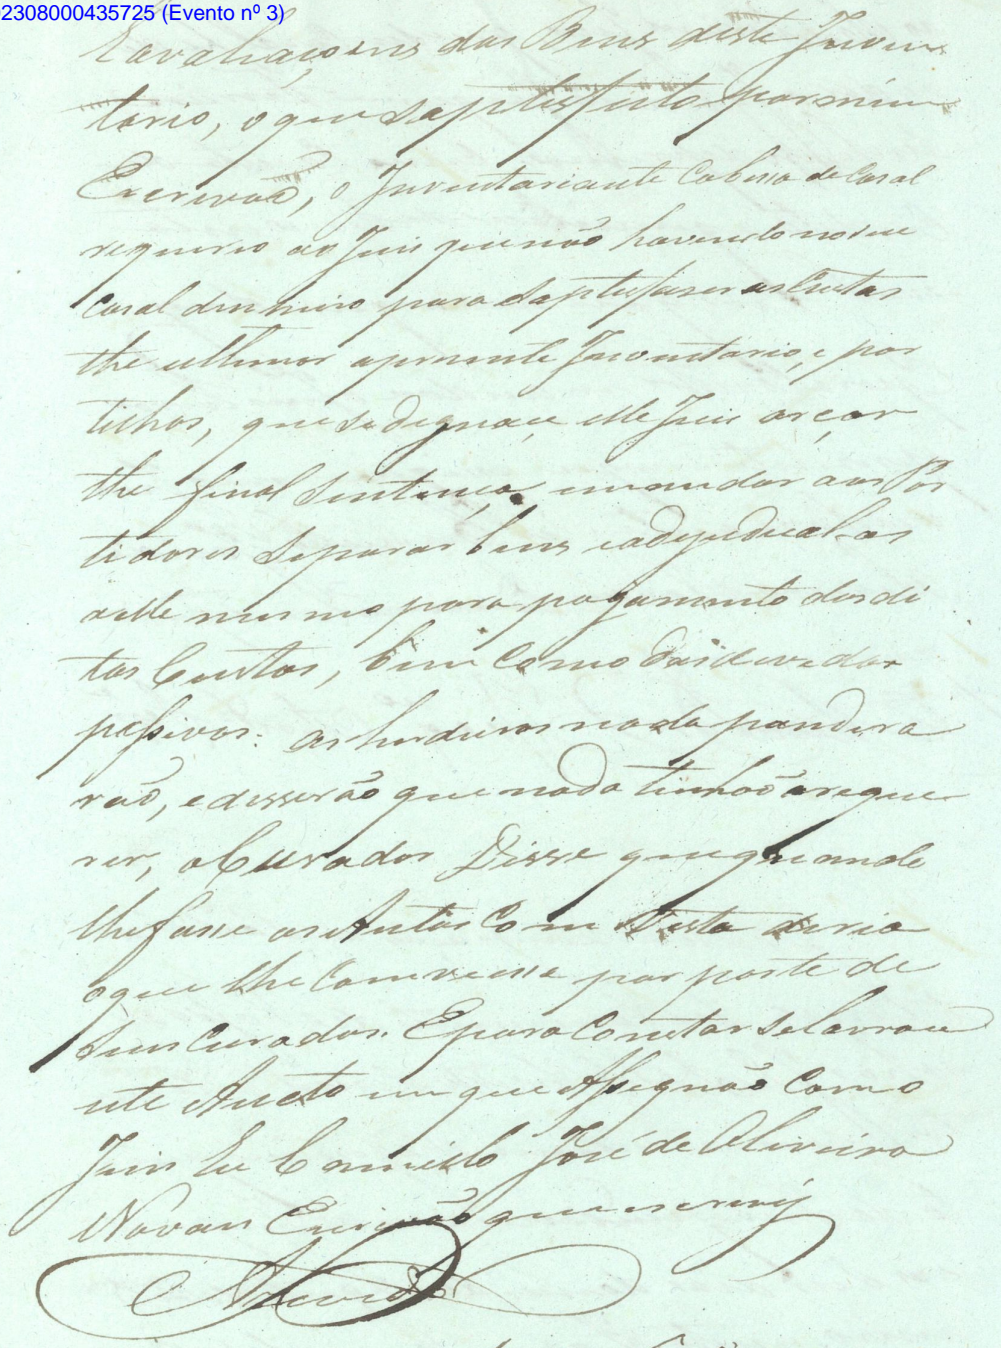 02308000435725 (Evento nº 3)
E avaliaçoens dos Bens deste Inven
tario, o que saptisfeito por mim
Escrivaõ, o Inventariante Cabessa de Casal
requereo ao Juis que não havendo no seu
Casal dinheiro para saptisfaser as Custas
the ultimar apresente Inventario, e par
tilhas, que se dignace elle Juis
the final sentença, emandar aos Par
tidores separar bens eadjudical-os
aelle mesmo para pagamento das di
tas Custas, bem como das
passivas: os herdeiros nada pondera
raõ, e disserão que nada tinhaõ areque
rer, o Curador Disse que quando
lhe fosse os Autos Com Vista diria
oque lhe Comviesse por parte de
seus Curados. E para Constar se lavrou
este Aucto em que Assegnão Com o
Juis Eu Camillo José de Oliveira
Novaes Escrivão que escrevÿ
Azevedo